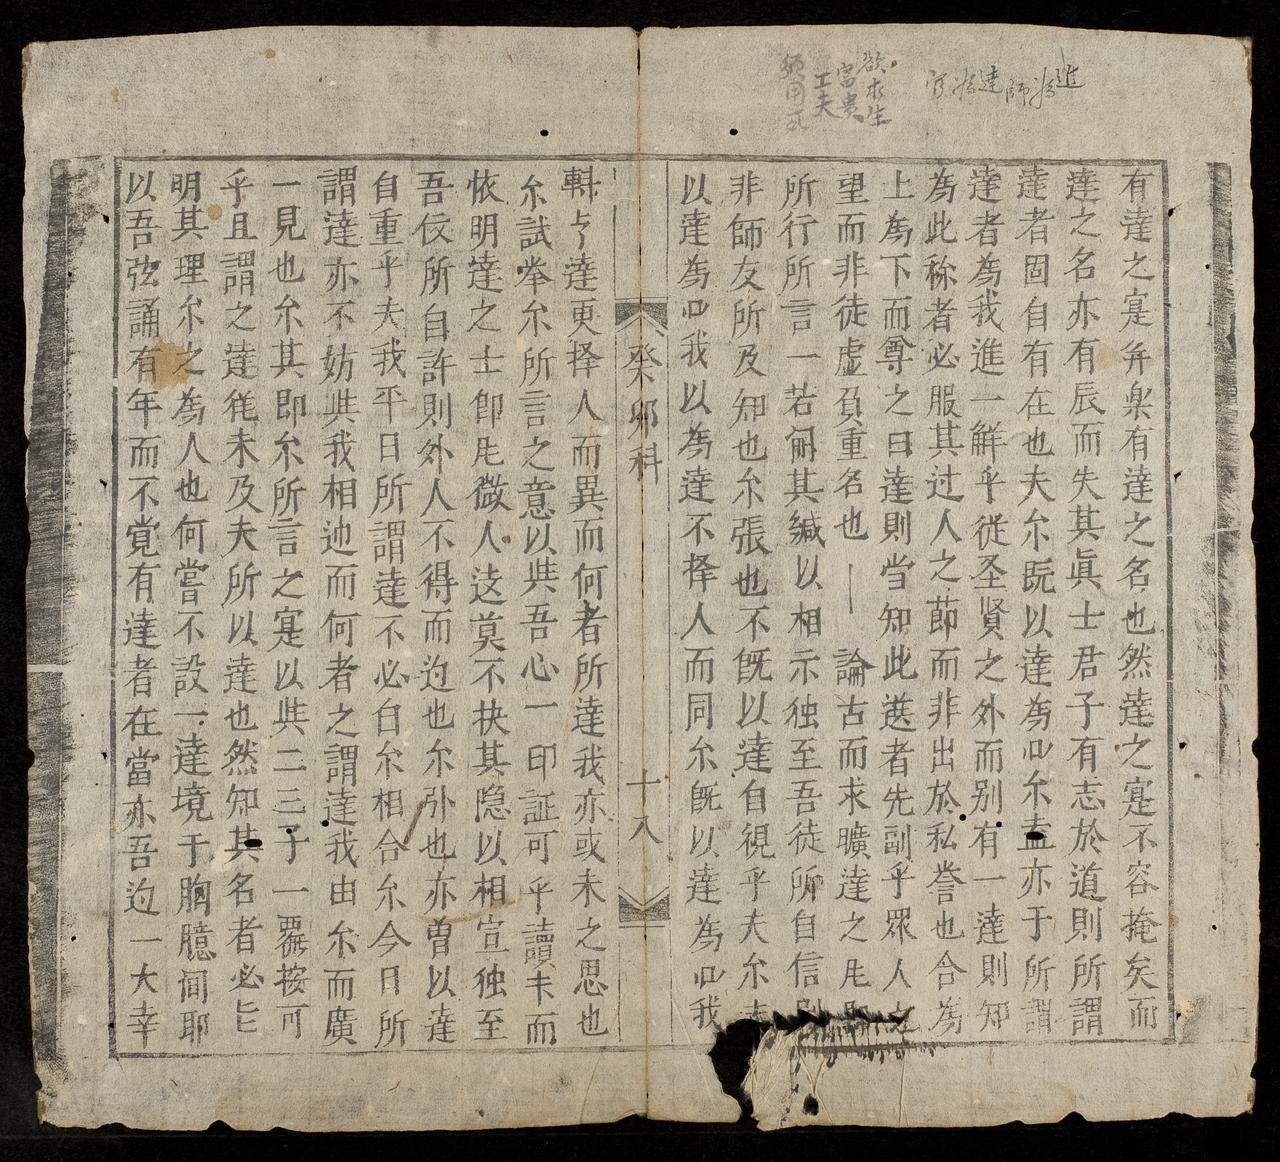 有達之寔弁枽有達之名也然達之寔不容掩矣而
達之名亦有辰而失其眞士君子有志於道則所謂
達者固自有在也夫尒既以達為叩尒盍亦于所謂
達者為我進一觧乎従圣贤之外而别有一達則知
為此称者必服其过人之莭而非出於私誉也合為
上為下而尊之曰達則当知此迯者先訓乎眾人之
望而非徒虚負重名也 — 論古而求曠達之凥
所行所言一若觧其緘以相示独至吾徒所自信則
非師友所及知也尒張也不旣以達自視乎夫尒
以達為叩我以為達不择人而同尒旣以達為叩我
癸卯科
十八
輙与達更择人而異而何者所達我亦或未之思也
尒試举尒所言之意以㒷吾心一印証可乎讀未而
恢明達之士卽凥微人迲莫不抉其隐以相宣独至
吾伩所自許則外人不得而迫也尒张也亦曽以達
自重乎夫我平日所謂達不必白尒相合尒今日所
謂達亦不妨㒷我相迆而何者之謂達我由尒而廣
一見也尒其即尒所言之寔以㒷二三子一覈按可
乎且謂之達徃未及夫所以達也然知其名者必㫖
明其理尒之為人也何嘗不設一達境于胸臆间耶
以吾弦誦有年而不覚有達者在當亦吾迫一大幸
欲求生
富贵
工夫
須用
進
師
達